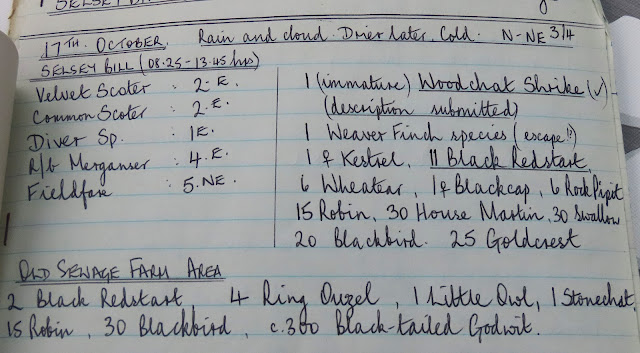 SELSEY BILL
17TH. OCTOBER. Rain and cloud. Drier later, Cold. N-NE 3/4
SELSEY BILL (08.25-13.45 hrs)
Velvet Scoter : 2. E.
Common Scoter : 2. E.
Diver Sp. : 1E.
R/b Merganser : 4. E.
Fieldfare : 5. NE.
1 (immature) Woodchat Shrike (✓)
(description submitted)
1 Weaver Finch species (escape!?)
1 ♀ Kestrel, 11 Black Redstart,
6 Wheatear, 1♀ Blackcap, 6 Rock Pipit
15 Robin, 30 House Martin, 30 Swallow
20 Blackbird. 25 Goldcrest
OLD SEWAGE FARM AREA
2 Black Redstart, 4 Ring Ouzel, 1 Little Owl, 1 Stonechat,
15 Robin, 30 Blackbird, c.300 Black-tailed Godwit.